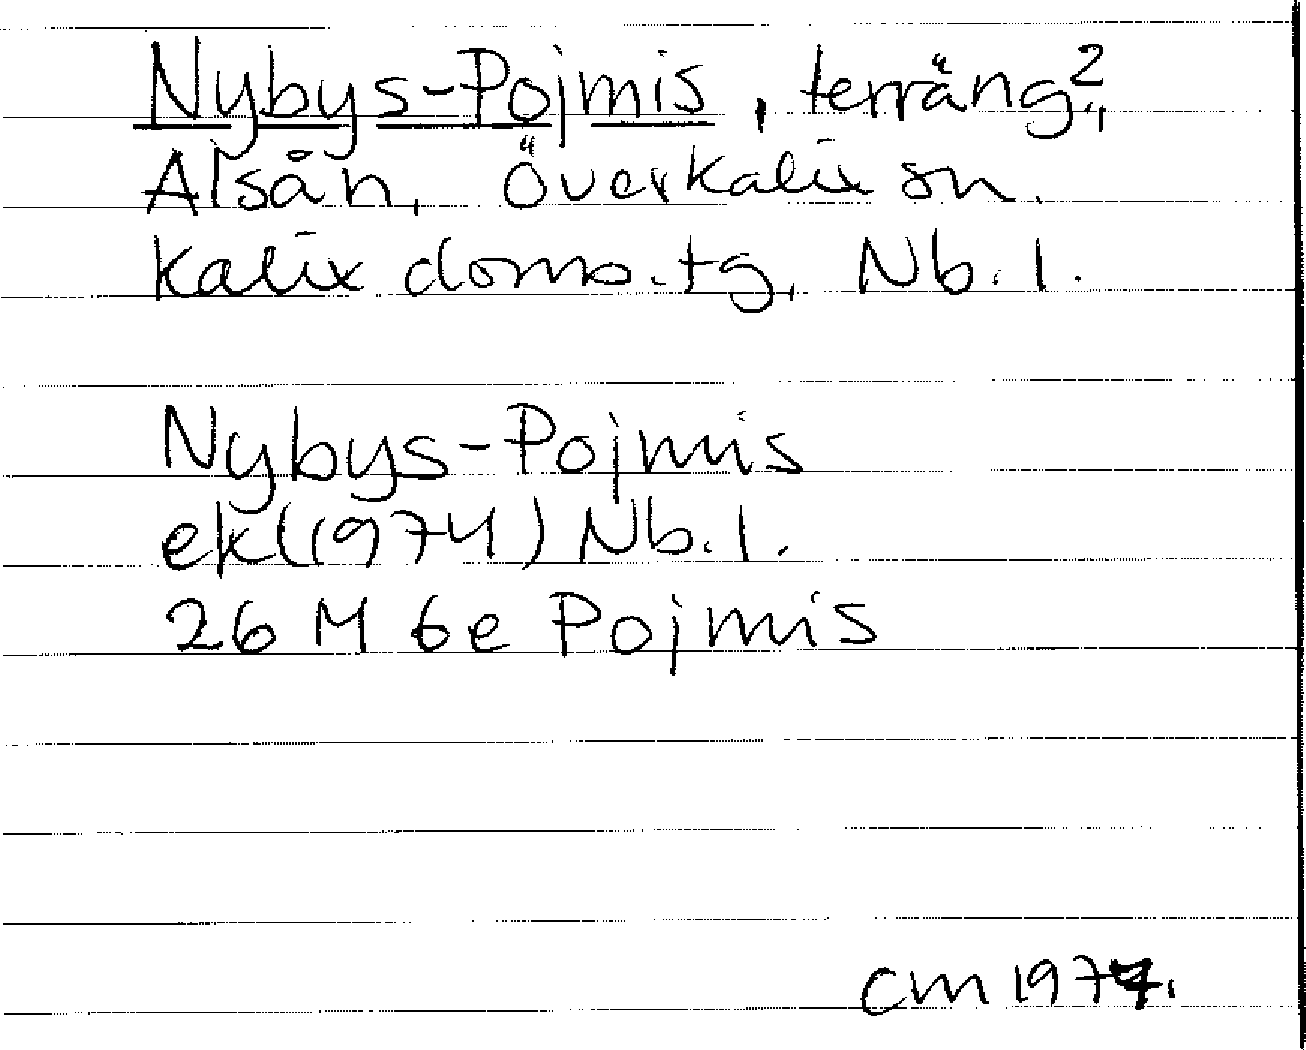 Nybys-Pojmis, terräng?,
Alsån, Överkalix sn.
Kalix doms.tg, Nb. l.
Nybys-Pojmis
ek (1974) Nb. l.
26 M 6e Pojmis
CM